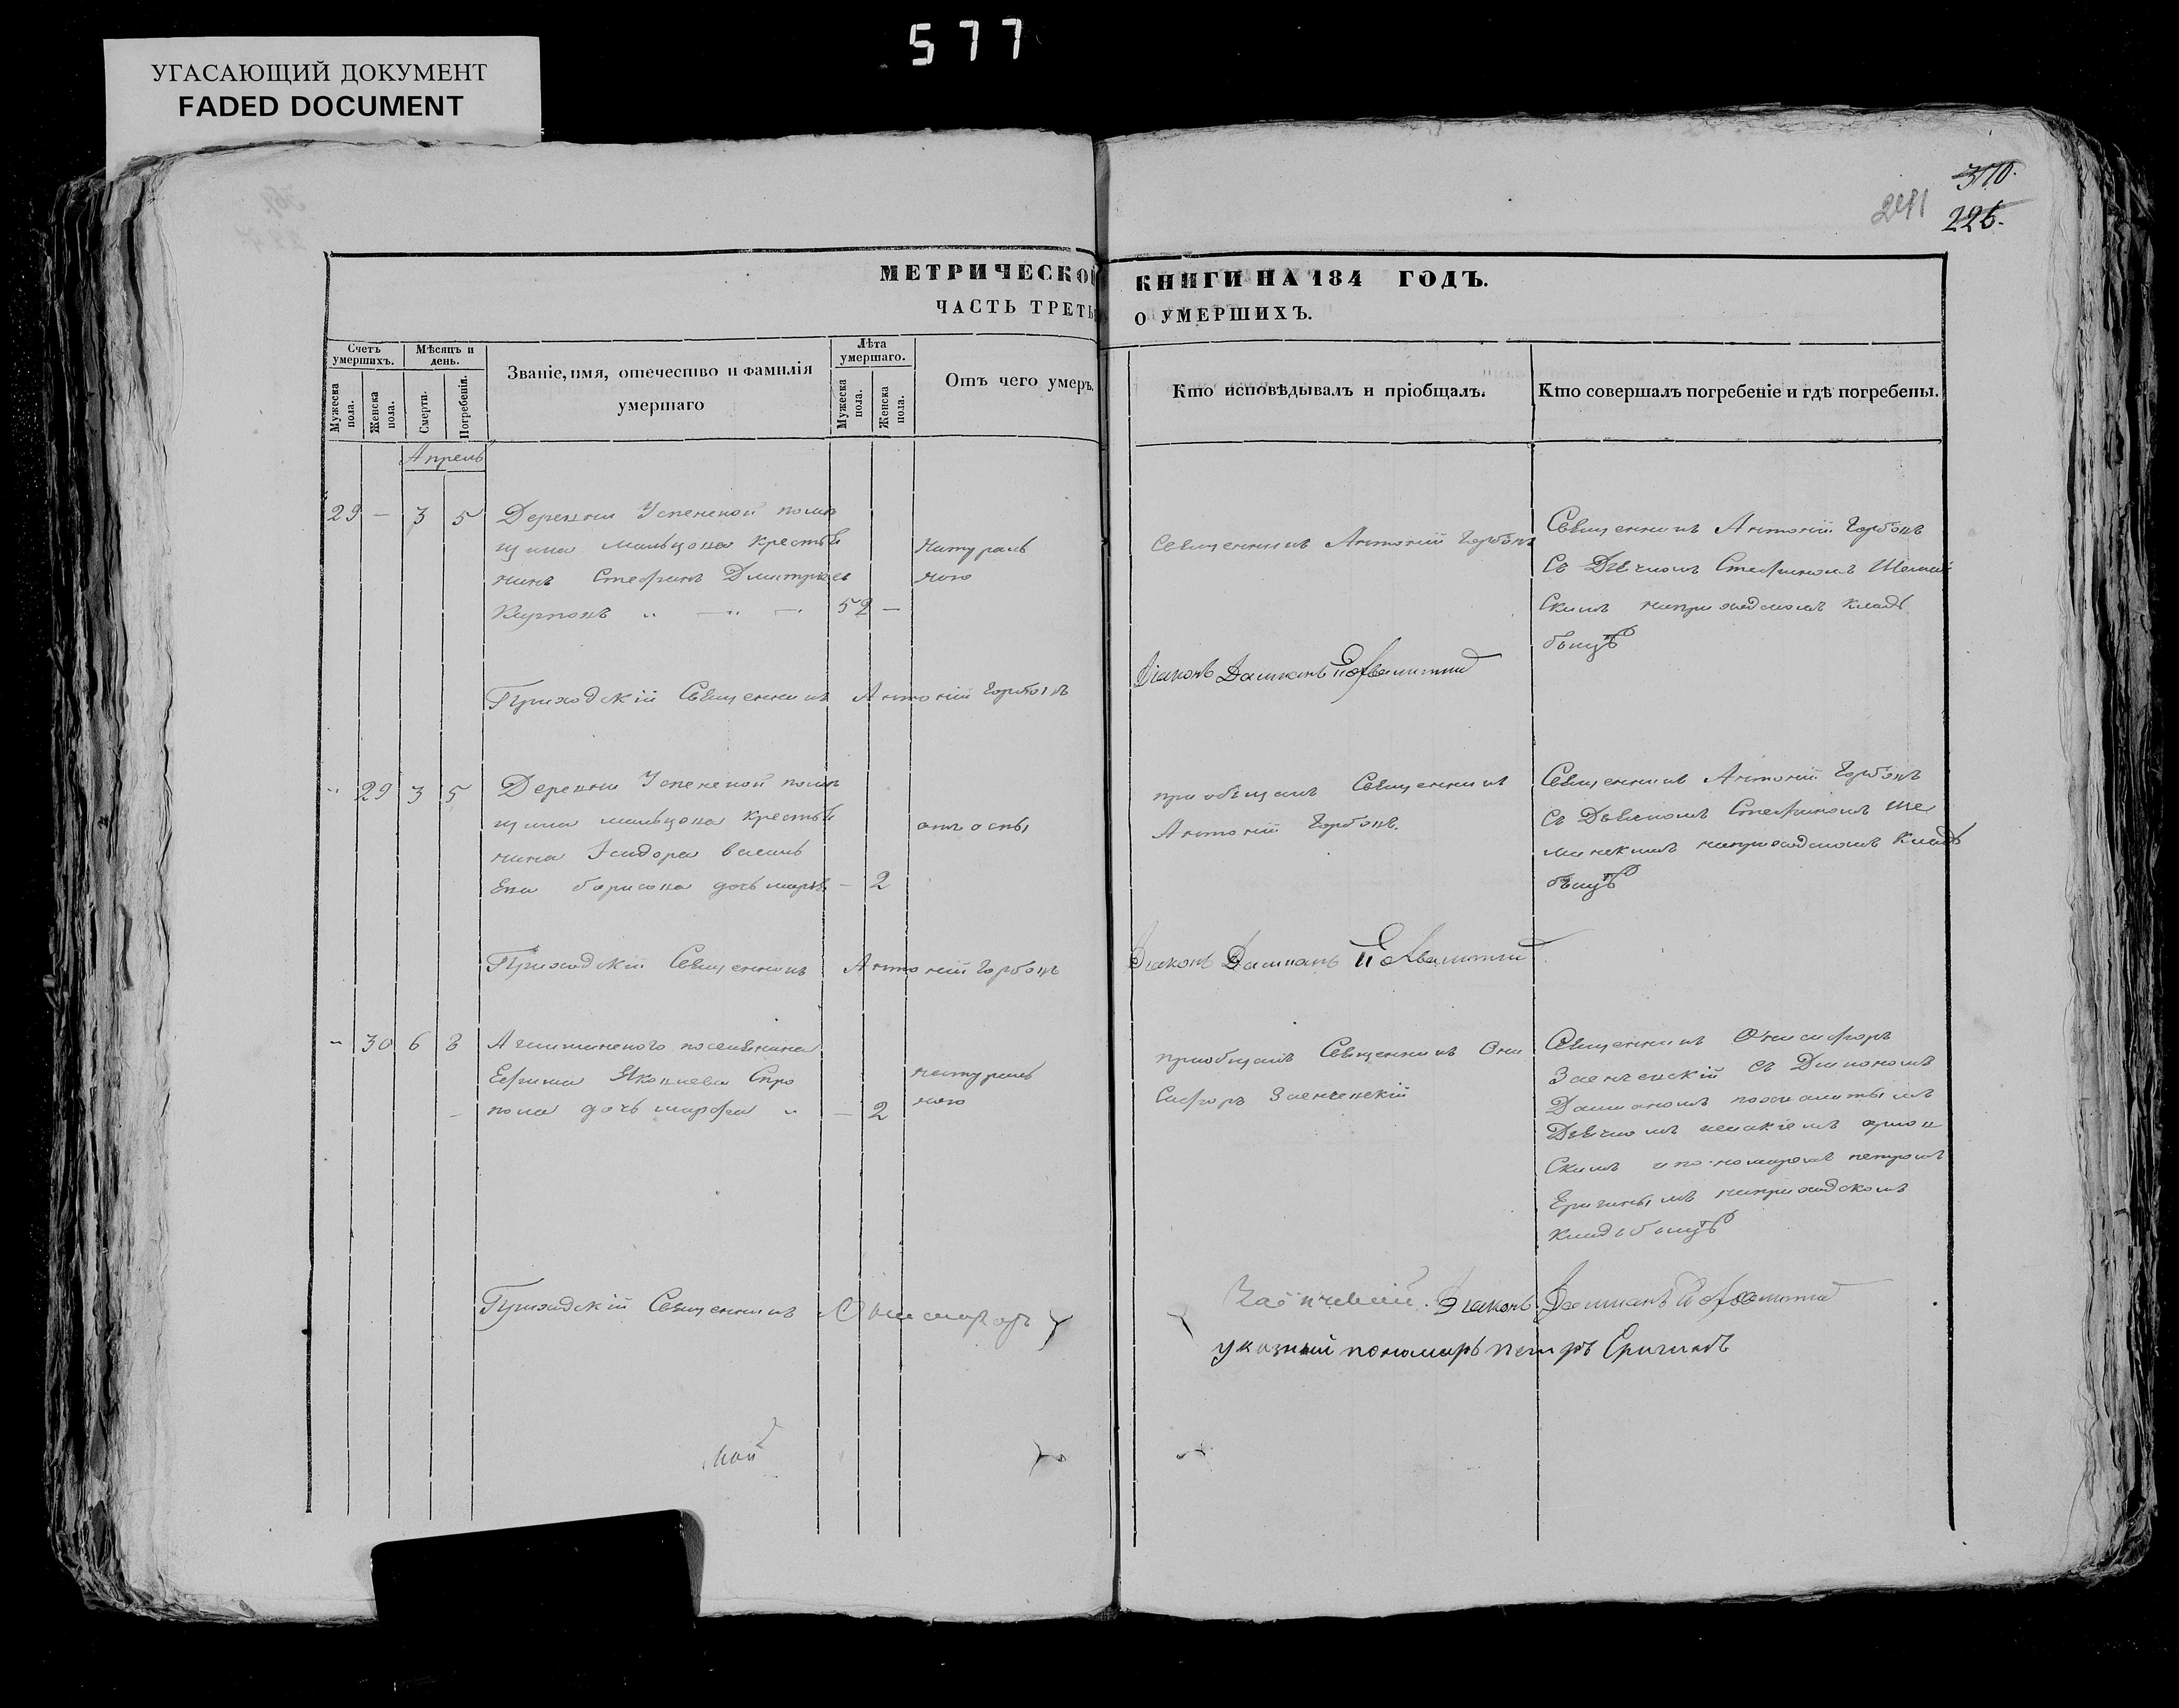 577
УГАСАЮЩИЙ ДОКУМЕНТ
FADED DOCUMENT
370.
241 226.
МЕТРИЧЕСКОЙ КНИГИ НА 184 ГОДЪ.
ЧАСТЬ ТРЕТЬ О УМЕРШИХЪ.
Счетъ умершихъ.
Мужеска пола.
Женска пола.
Мѣсяцъ и день.
Смерти.
Погребенія.
Званіе, имя, отечество и фамилія умершаго
Лѣта умершаго.
Мужеска пола.
Женска пола.
Отъ чего умеръ.
Кто исповѣдывалъ и пріобщалъ.
Кто совершалъ погребеніе и гдѣ погребены.
Апрель
29 — 3 5
Деревни Успенской помѣ
щика мальцова крестья
нинъ Стефанъ Дмитріев
52 —
Натураль
ною
Священникъ Антоній Горбонъ
Священникъ Антоній Горбонъ
Съ Дьячкомъ Стефаномъ
Скимъ наприходскомъ кладъ
бищѣ
Приходскій Священникъ Антоній Горбонъ
Діаконъ Даміанъ
29 3 5
Деревни Успенской помѣ
щика мальцова крестья
нина Исидора василь
Ева борисова дочь марѳа — 2
отъ оспы
приобщалъ Священникъ
Антоній Горбонъ.
Священникъ Антоній Горбонъ
Съ Дьячкомъ Стефаномъ Ше
минскимъ наприходскомъ Кладъ
бищѣ
Приходскій Священникъ Антоній Горбонъ
Діаконъ Даміанъ
30 6 8
поселянина
Ефима Яковлева
дочь марфа — 2
натураль
ною
приобщалъ Священникъ Они
Сифоръ
Священникъ Онисифоръ
Съ Диякономъ
Даміаномъ
Дьячкомъ
Скимъ и пономаремъ петромъ
Еригинымъ наприходскомъ
Кладъбищѣ
Приходскій Священникъ Онисифоръ
Діаконъ Даміанъ
указный пономарь петръ Еригинъ
Май